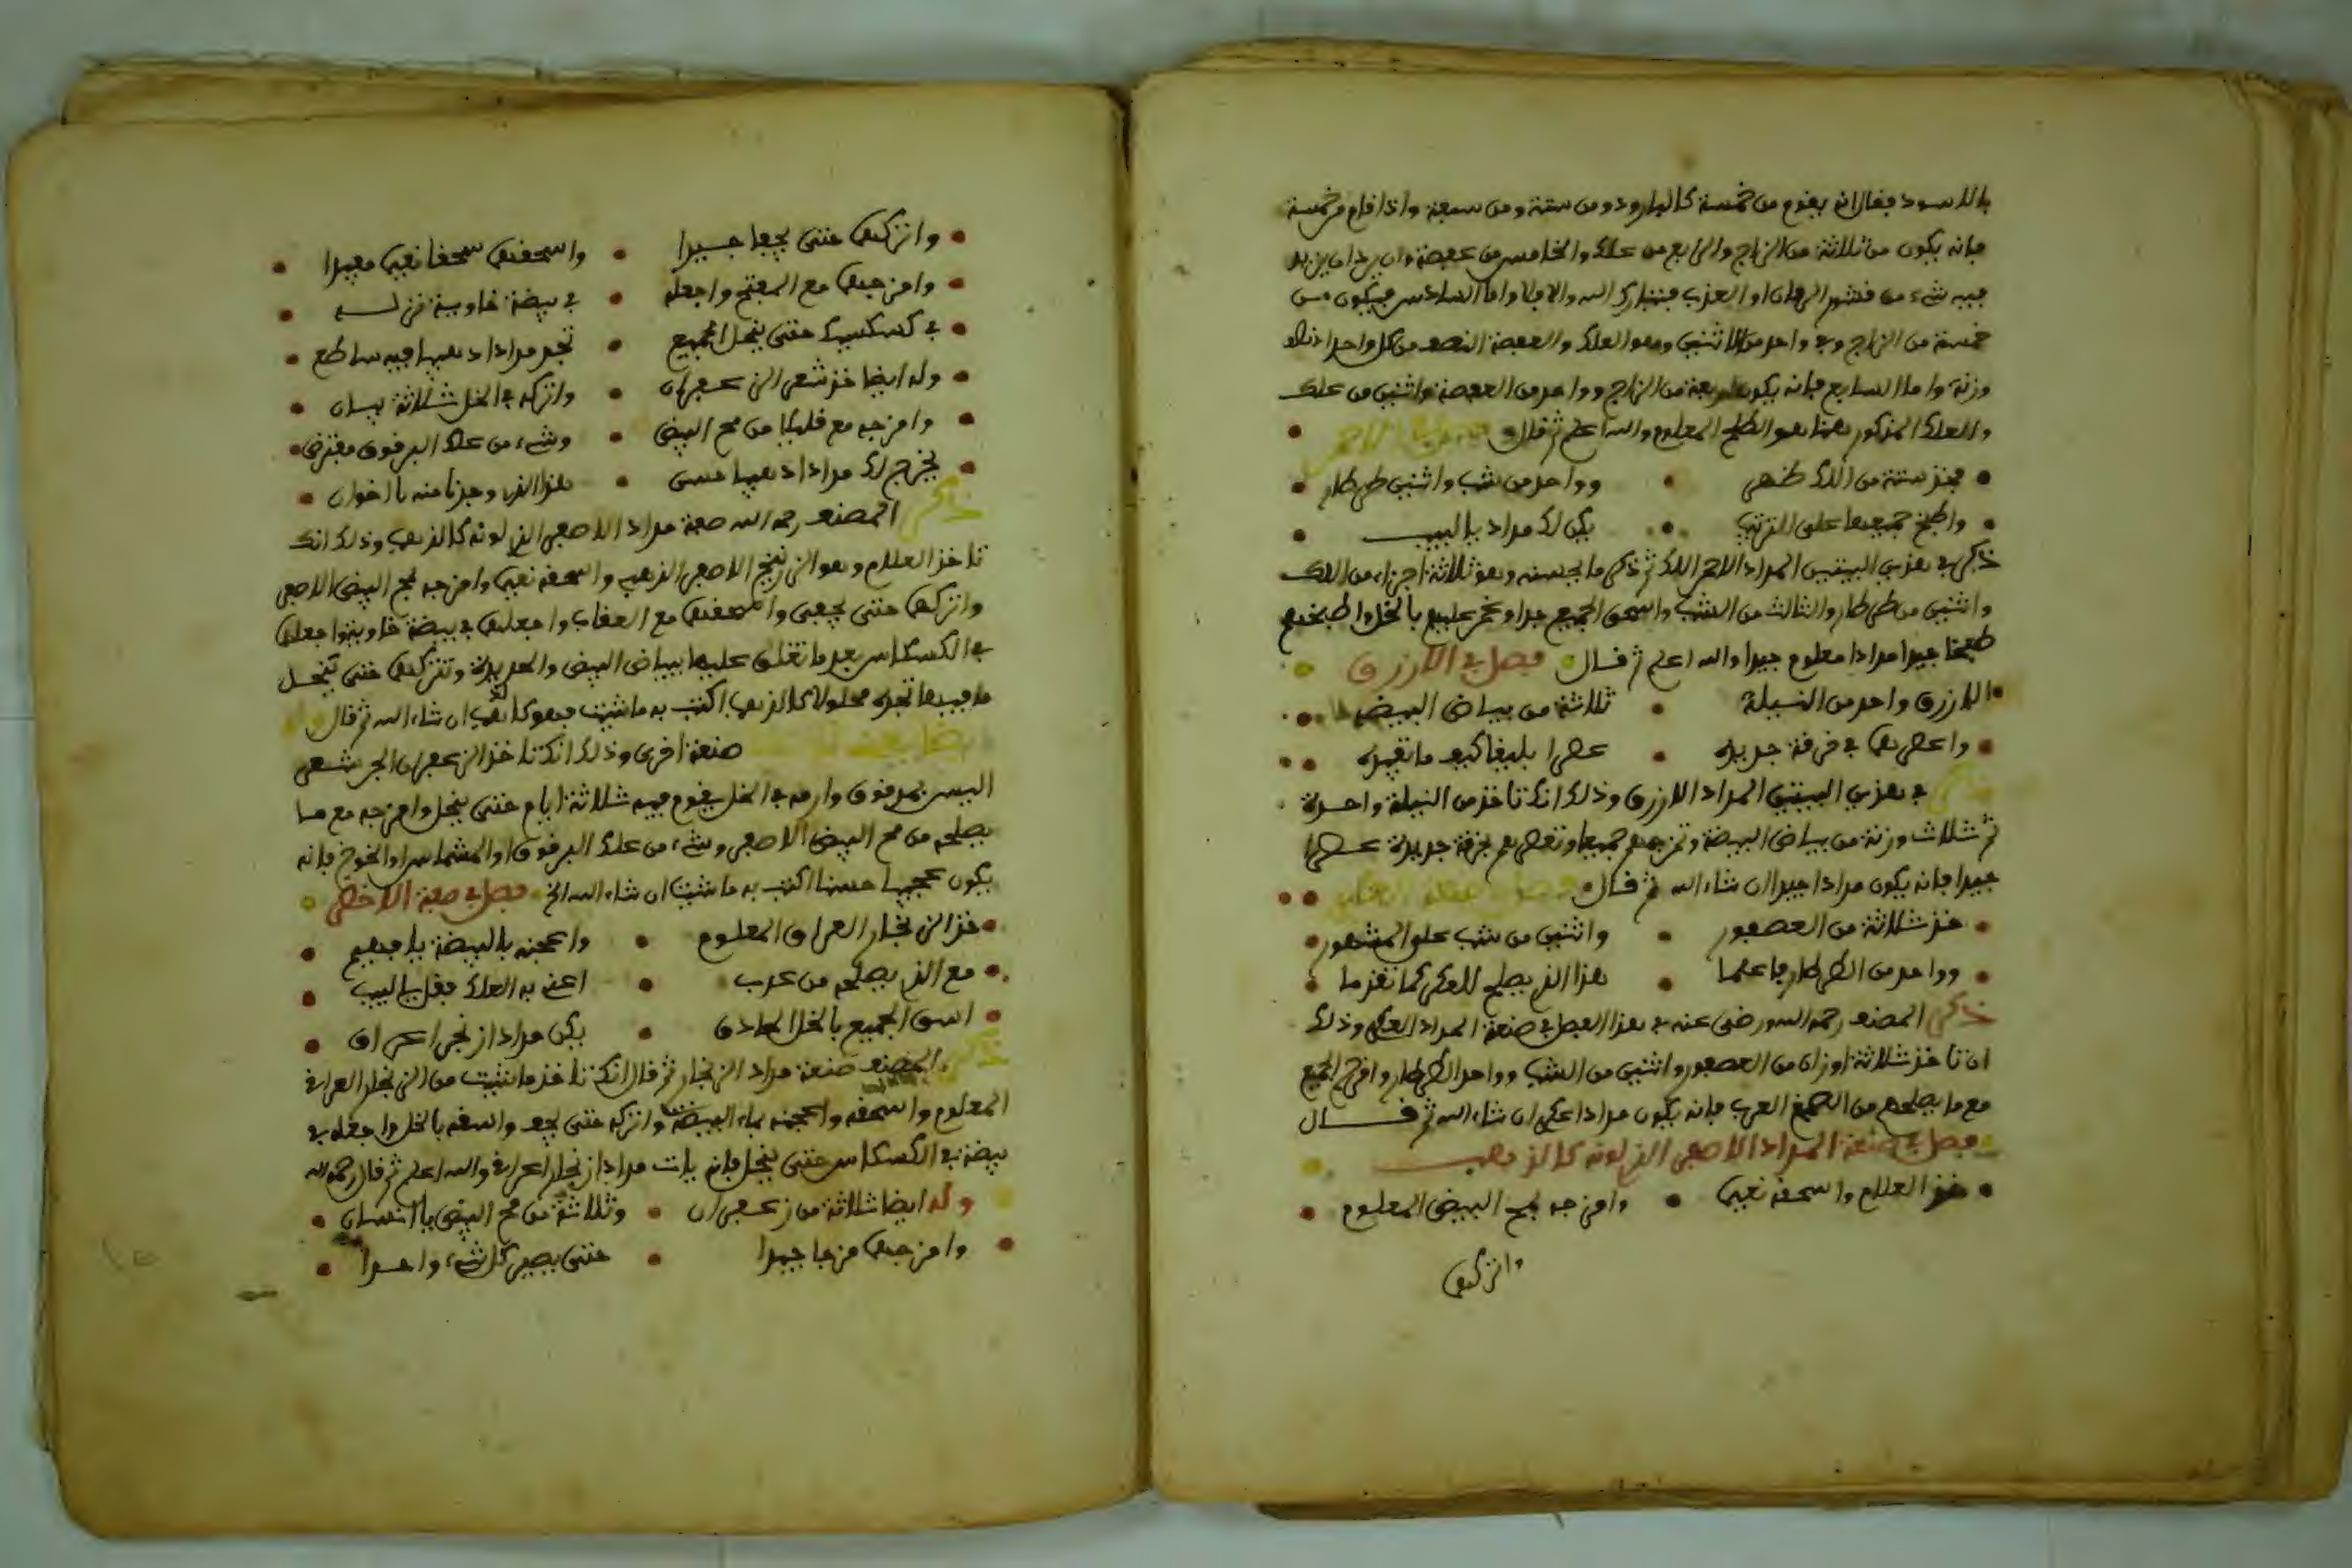 بالاسود فقال انه يقوم من خمسة كالبارود ومن ستة ومن سبعة واذا قام من خمسة
فانه يكون من ثلاثة من الزاج والرابع من علك والخامس من عفصة وان يزيد
فيه شيء من قشور الرمان او العزب فتبارك الله والا فلا واما السادس فيكون من
خمسة من الزاج وفي واحد من الاثنين وهو العلك والعفصة النصف من كل واحد
وزنة واما السابع فانه يكون اربعة من الزاج وواحد من العفصة واثنين من علك
والعلك المذكور هنا هو الطلح المعلوم والله اعلم ثم قال
فخذ ستة من اللك طهر وواحد من شب واثنين طرطار
واطبخ جميعها على الترتيب يكن لك مداد يا لبيب
ذكر في هذين البيتين المداد الاحمر اللك ثم ذكر ما يحسنه وهو ثلاثة اجزاء من اللك
واثنين من طرطار والثالث من الشب واسحق الجميع جدا عليهم بالخل واطبخهم
طبخا جيدا مدادا معلوم جيدا والله اعلم ثم قال فصل في الازرق
الازرق واحد من النيلة ثلاثة من بياض البيضة
واعصرها في خرقة جديدة عصرا بليغا كيف ما تفيده
ذكر في هذين البيتين المداد الازرق وذلك انك تاخذ من النيلة واحدة
ثم ثلاث وزنة من بياض البيضة وتمزجهم جميعا وتعصرهم بخرقة جديدة عصرا
جيدا فانه يكون مدادا جيدا ان شاء الله ثم قال
خذ ثلاثة من العصفور واثنين من شب علي المشهور
وواحد من الطرطار فاعلما هذا الذي يصلح للعكر كما تقدما
ذكر المصنف رحمه الله ورضي عنه في هذا الفصل في صنعة المداد العكر وذلك
ان تاخذ ثلاثة اوزان من العصفور واثنين من الشب وواحد الطرطار وامزج الجميع
مع ما يصلحهم من الصمغ العرب فانه يكون مدادا عكر ان شاء الله ثم قال
فصل في صنعة المداد الاصفر الذي لونه كالذهب
خذ العلام واسحقه نعيما وامزجه بمح البيض المعلوم
واتركها
واتركها حتى يجفا جيدا واسحقها سحقا نعيما مفيدا
وامزجها مع المفتح واجعله في بيضة خاوية
في كسكسك حتى ينحل الجميع تجد مدادا ذهبيا فيه ساطع
وله ايضا خذ شعر الزعفران واتركه في الخل ثلاثة بيان
وامزجه مع قليلا من مح البيض وشيء من علك البرقوق مفترض
يخرج لك مدادا ذهبيا حسن هذا الذي وجدنا منه يا اخوان
ذكر المصنف رحمه الله صفة مداد الاصفر الذي لونه كالذهب وذلك انك
تاخذ العلام وهو الزرنيخ الاصفر الذهبي واسحقه نعيما وامزجه بمح البيض الاصفر
واتركها حتى يجفى واسحقها مع العقاب واجعلها في بيضة خاوية واجعلها
في الكسكاس بعد ما تغلق عليها ببياض البيض والحديدة وتتركها حتى ينحل
ما فيها تجده محلولا كالذهب اكتب به ما شئت فهو كذهب ان شاء الله ثم قال وله
ايضا صنعة اخرى وذلك انك تاخذ الزعفران الجر شعر
اليبس وارمه في الخل يقوم فيه ثلاثة ايام حتى ينحل وامزجه مع ما
يصلحه من مح البيض الاصفر وشيء من علك البرقوق او المشماس او الخوخ فانه
يكون عجيبا حسنا اكتب به ما شئت ان شاء الله الخ فصل في صفة الاخضر
خذ الزنجار العراق المعلوم واعجنه بالبيضة يا فهيم
مع الذي يصلحه من عرب اعني به العلك فقل يا لبيب
اسق الجميع بالخل الحاذق يكن مدادا زنجرا عراق
ذكر المصنف صنعة مداد الزنجار ثم قال انك تاخذ ما شئت من الزنجار العراقي
المعلوم واسحقه واعجنه بماء البيضة واتركه حتى يجف واسقه بالخل واجعله في
بيضة في الكسكاس حتى ينحل فانه يات مدادا زنجارا عراقي والله اعلم ثم قال رحمه الله
وله ايضا ثلاثة من زعفران وثلاثة من مح البيض يا انسان
وامزجها مزجا جيدا حتى يصير كل شيء واحدا